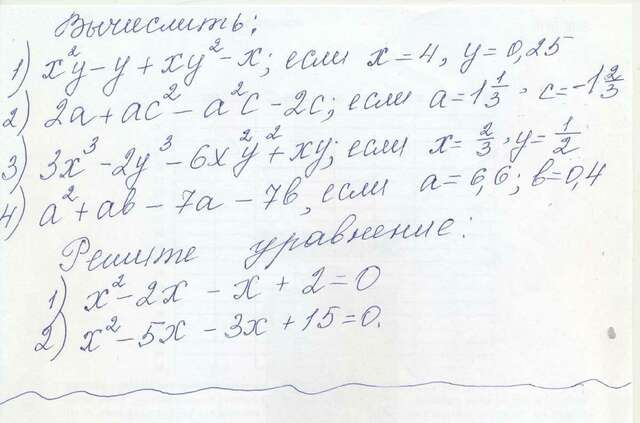 Вычислить:
1) x²y - y + xy² - x; если x = 4, y = 0,25
2) 2a + ac² - a²c - 2c; если a = 1 1/3, c = -1 2/3
3) 3x³ - 2y³ - 6x²y² + xy; если x = 2/3, y = 1/2
4) a² + ab - 7a - 7b, если a = 6,6; b = 0,4
Решите уравнение:
1) x² - 2x - x + 2 = 0
2) x² - 5x - 3x + 15 = 0.